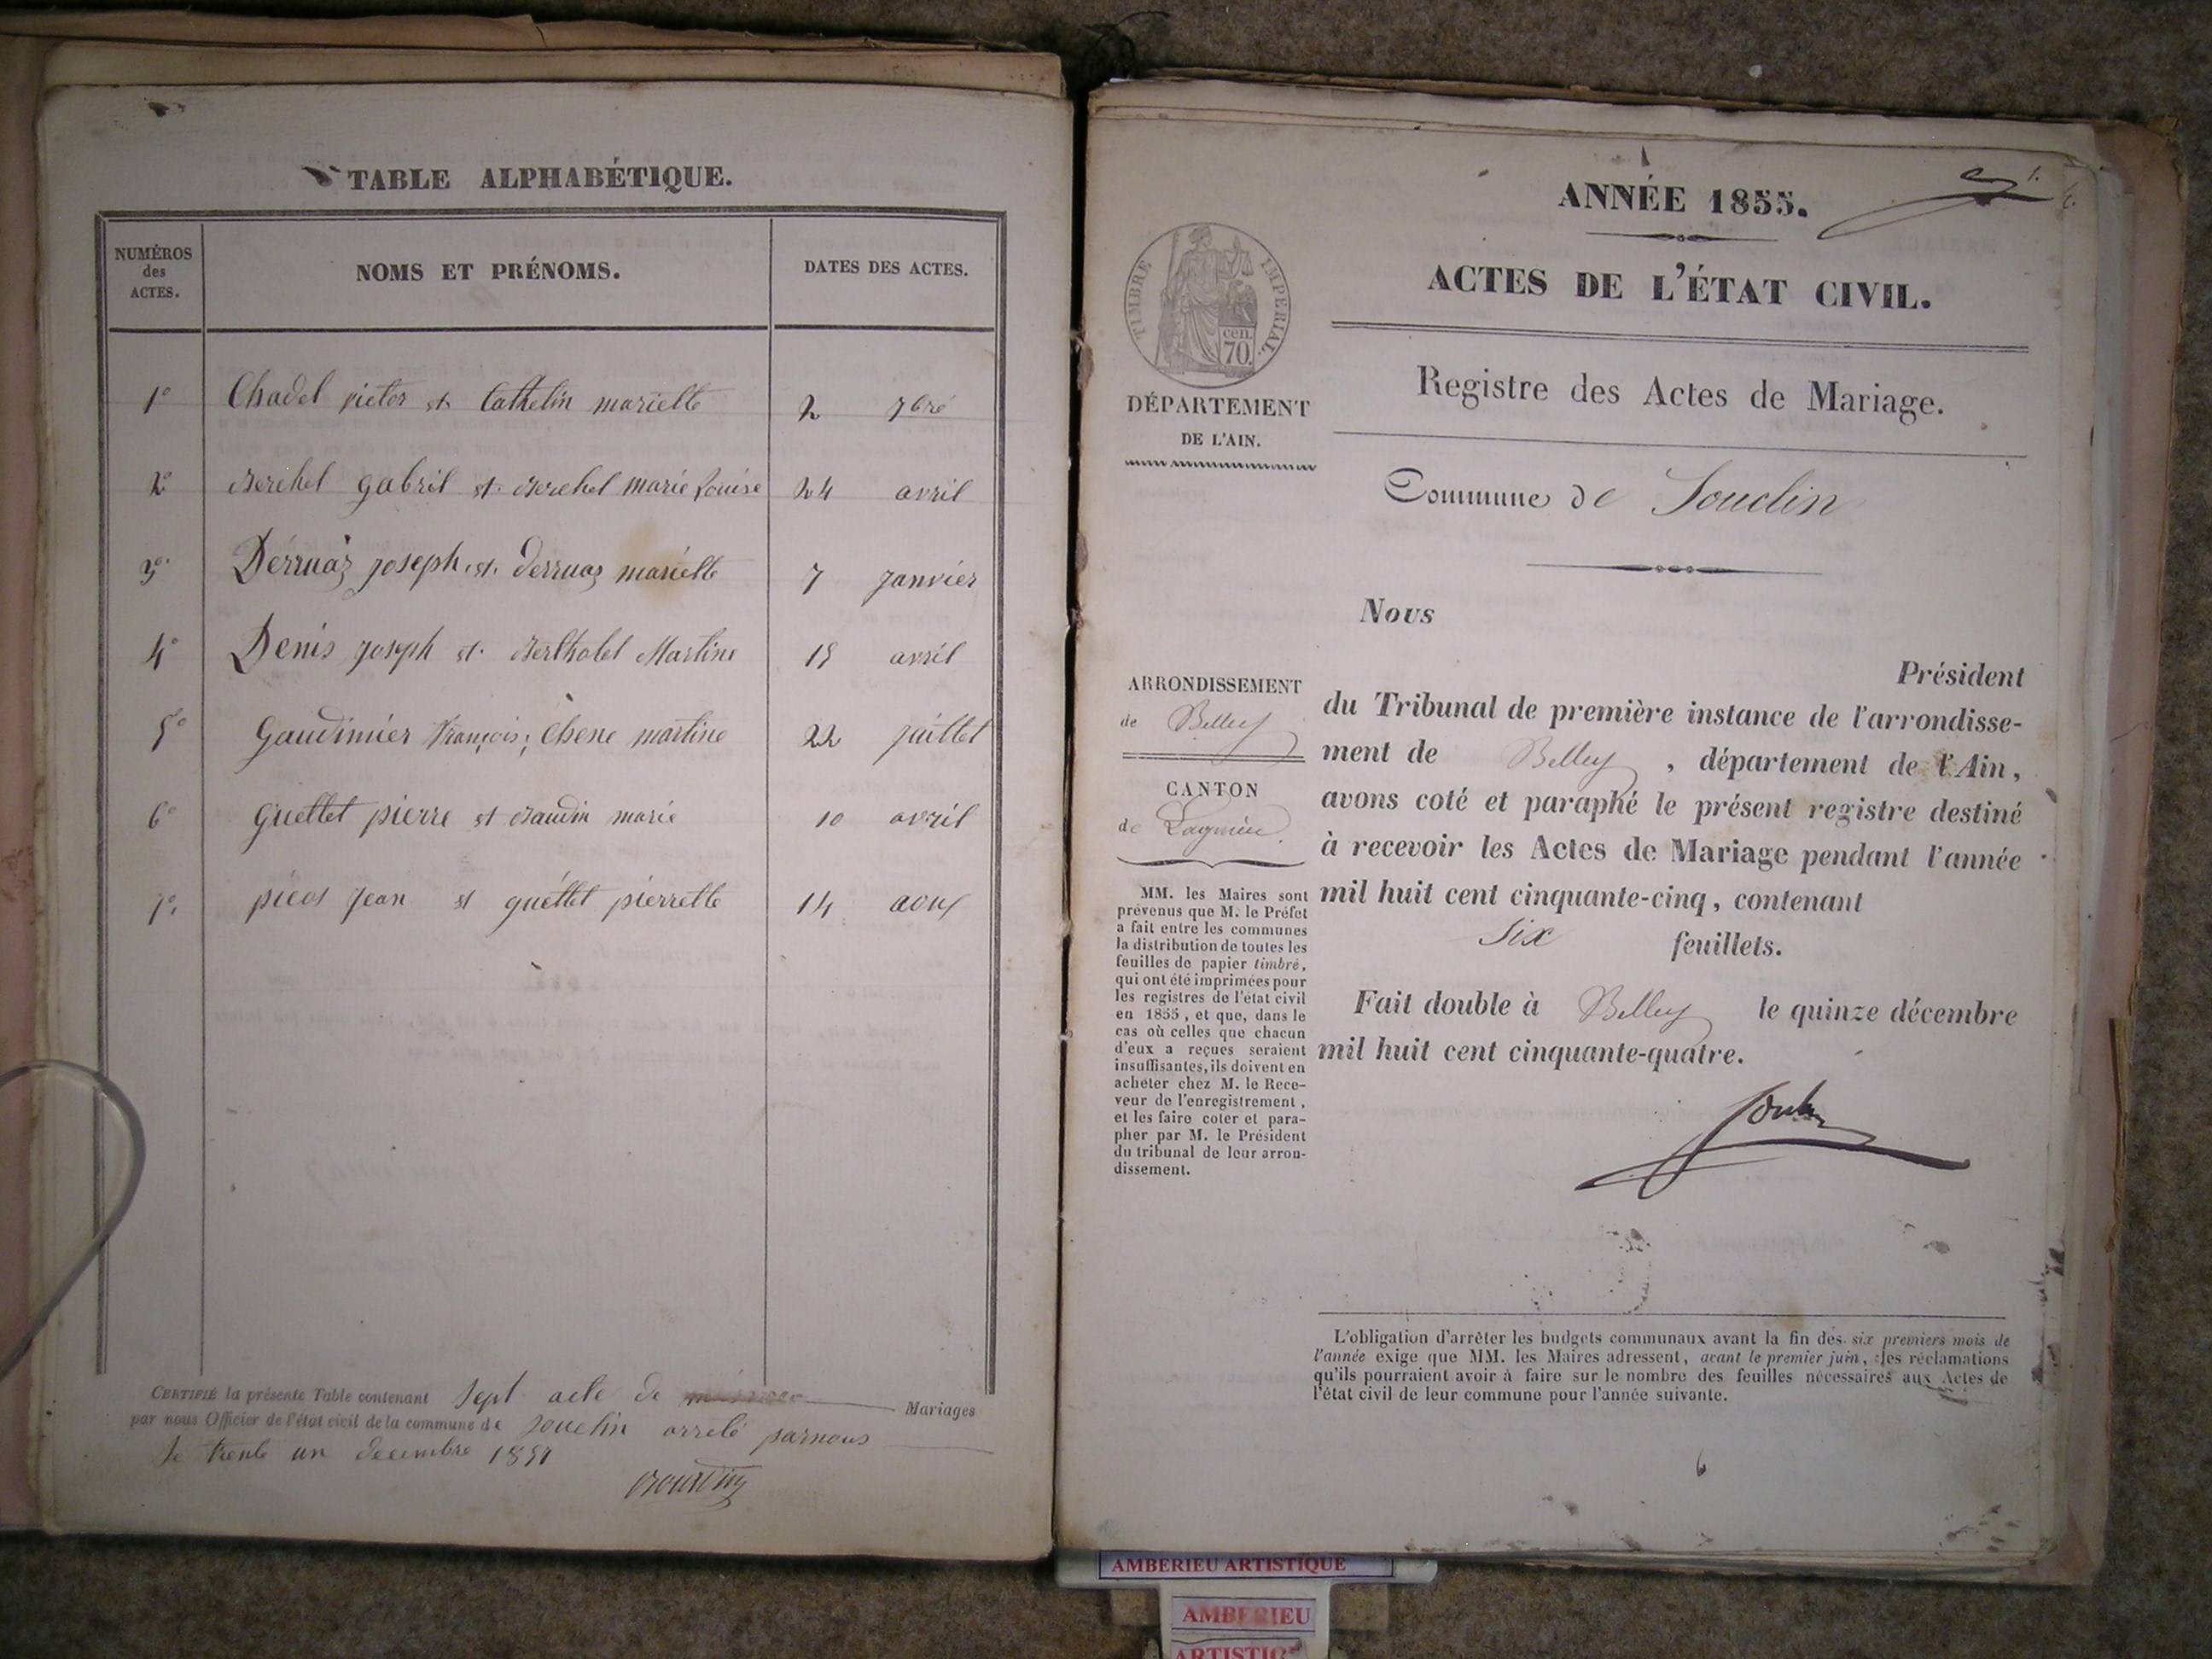 TABLE ALPHABÉTIQUE.
NUMÉROS des ACTES.
NOMS ET PRÉNOMS.
DATES DES ACTES.
1° Chadel victor et Cathelin mariette 2 7bre
2° Berchet gabril et Berchet marie Louise 24 avril
3° Derruaz joseph et derruaz mariette 7 janvier
4° Denis joseph et Bertholet Martine 18 avril
5° Gaudinier françois; Chene martine 22 juillet
6° guettet pierre et Baudin marie 10 avril
7° picot jean et guettet pierrette 14 aout
CERTIFIÉ la présente Table contenant Sept acte de Mariages
par nous Officier de l'état civil de la commune de Souclin arrêlé parnous
le trente un decembre 1854
ANNÉE 1855.
1.
ACTES DE L'ÉTAT CIVIL.
TIMBRE IMPERIAL.
cen.
70.
DÉPARTEMENT
DE L'AIN.
Registre des Actes de Mariage.
Commune de Souclin
Nous
Président
du Tribunal de première instance de l'arrondisse-
ment de Belley, département de l'Ain,
avons coté et paraphé le présent registre destiné
à recevoir les Actes de Mariage pendant l'année
mil huit cent cinquante-cinq, contenant
Six feuillets.
Fait double à Belley le quinze décembre
mil huit cent cinquante-quatre.
ARRONDISSEMENT
de Belley
CANTON
de Lagnieu
MM. les Maires sont
prévenus que M. le Préfet
a fait entre les communes
la distribution de toutes les
feuilles de papier timbré,
qui ont été imprimées pour
les registres de l'état civil
en 1855, et que, dans le
cas où celles que chacun
d'eux a reçues seraient
insuffisantes, ils doivent en
acheter chez M. le Rece-
veur de l'enregistrement,
et les faire coter et para-
pher par M. le Président
du tribunal de leur arron-
dissement.
L'obligation d'arrêter les budgets communaux avant la fin des six premiers mois de
l'année exige que MM. les Maires adressent, avant le premier juin, les réclamations
qu'ils pourraient avoir à faire sur le nombre des feuilles nécessaires aux Actes de
l'état civil de leur commune pour l'année suivante.
6
AMBERIEU ARTISTIQUE
AMBERIEU
ARTISTIQ